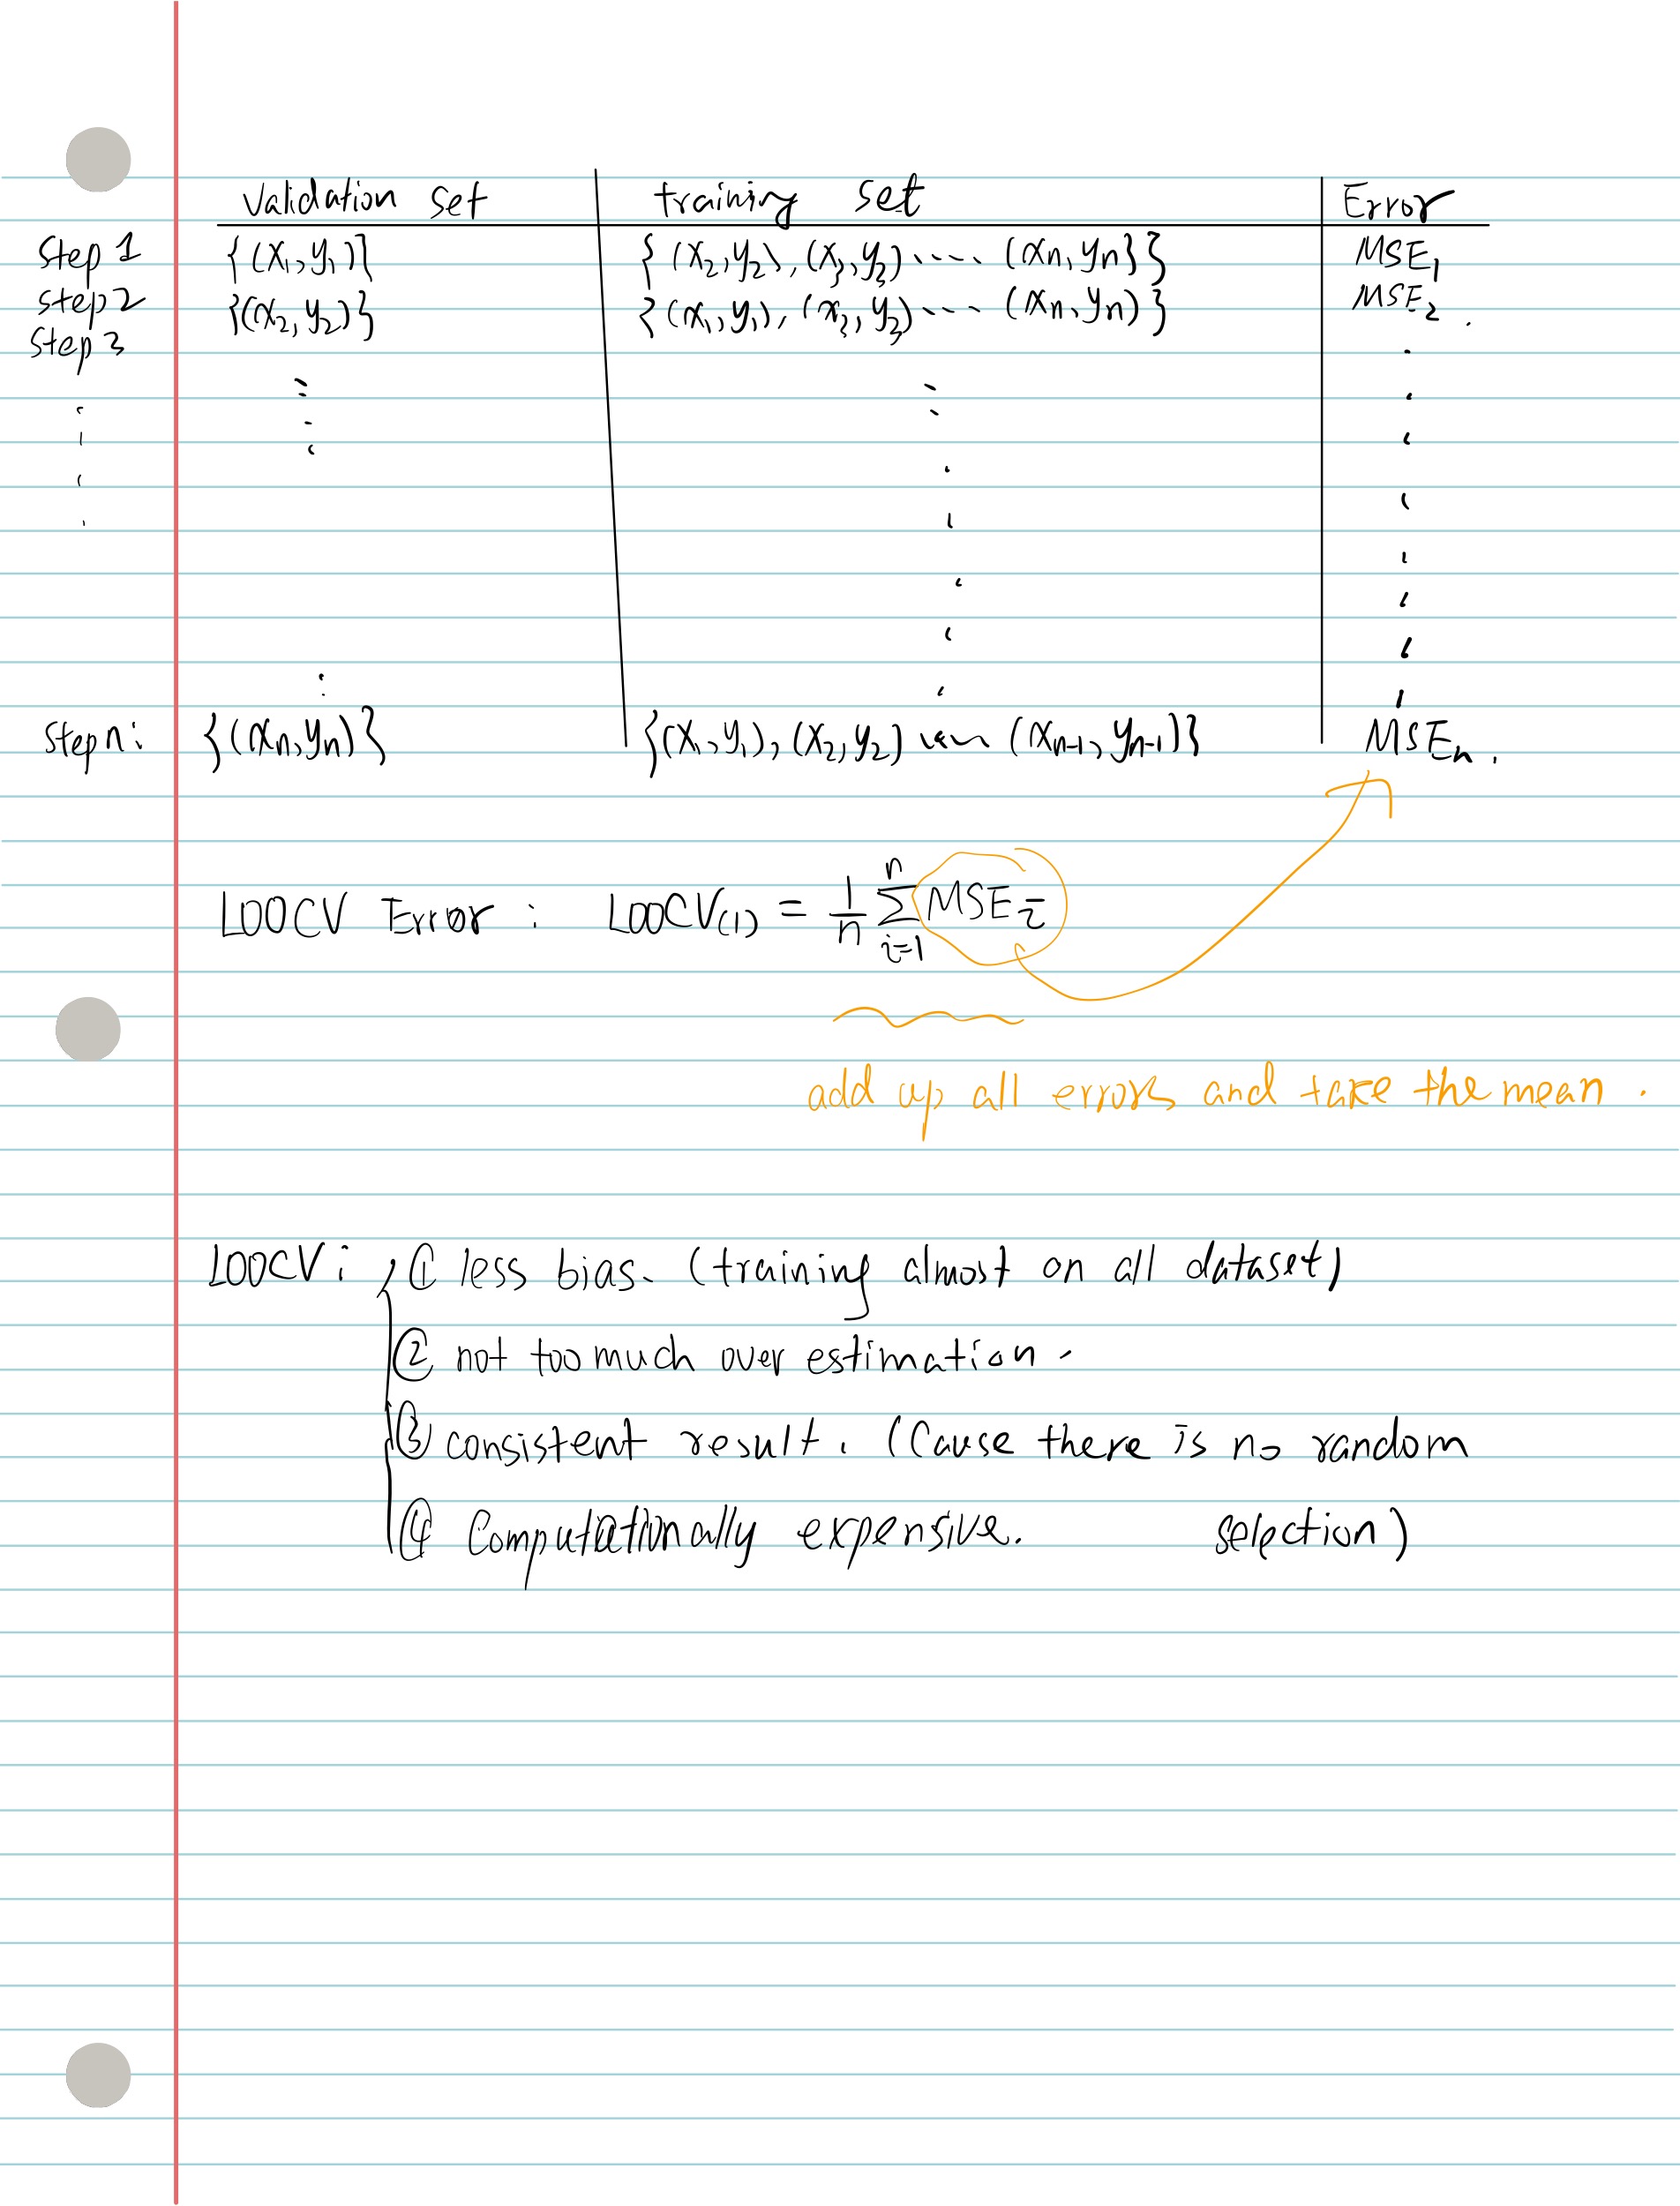 validation set training set Error
Step 1 {(x₁,y₁)} {(x₂,y₂),(x₃,y₃)---- (xn,yn}} MSE₁
Step2 {(x₂,y₂)} {(x₁,y₁),(x₃,y₃)---- (xn,yn)} MSE₂.
Step3
Stepn: {(xn,yn)} {(x₁,y₁),(x₂,y₂) ... (xn-1,yn-1)} MSEn.
LOOCV Error: LOOCV(1) = 1/n Σ i=1 n MSEi
add up all errors and take the mean.
LOOCV: ① less bias. (training almost on all dataset)
② not too much over estimation.
③ consistent result. (Cause there is no random
selection)
④ Computationally expensive.